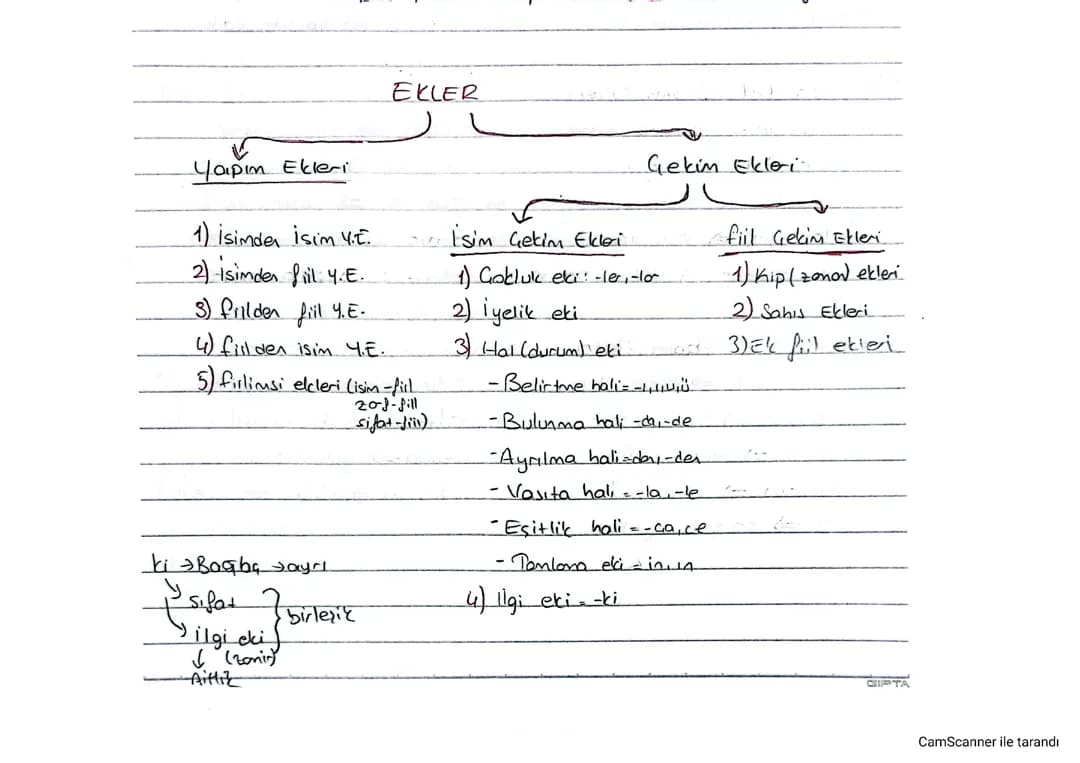 EKLER
Yapım Ekleri
Çekim Ekleri
1) İsimden İsim Y.E.
2) İsimden fiil Y.E.
3) fiilden fiil Y.E.
4) fiilden isim Y.E.
5) fiilimsi ekleri (isim-fiil
zarf-fiil
sıfat-fiil)
İsim Çekim Ekleri
1) Çokluk eki: -ler, -lar
2) İyelik eki
3) Hal (durum) eki
- Belirtme hali= -ı,i,u,ü
- Bulunma hali -da,-de
- Ayrılma hali=dan,-den
- Vasıta hali = -la, -le
- Eşitlik hali = -ca,ce
- Tamlama eki = in, ın
4) İlgi eki = -ki
fiil Çekim Ekleri
1) Kip (zaman) ekleri
2) Şahıs Ekleri
3) Ek fiil ekleri
ki → Bağlaç → ayrı
sıfat
birleşik
ilgi eki
(zamir)
Aitlik
GIPTA
CamScanner ile tarandı